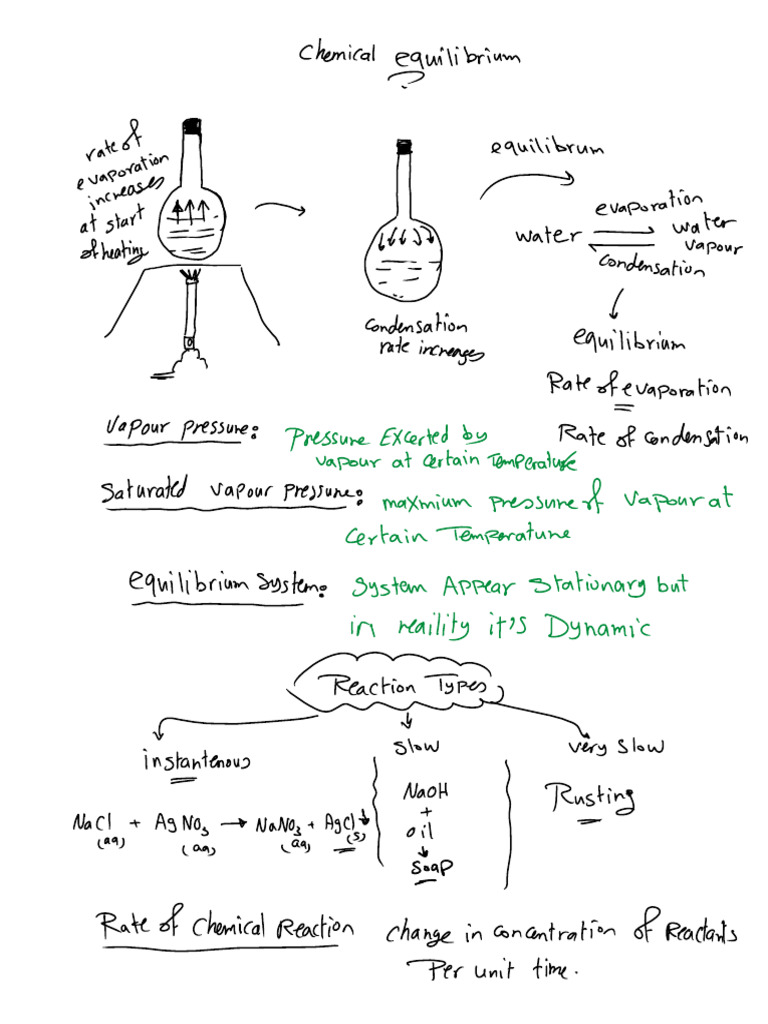 Chemical equilibrium
?
rate of
evaporation
increases
at start
of heating
Condensation
rate increases
equilibrum
evaporation
water ⇌ water
vapour
Condensation
equilibrium
Rate of evaporation
=
Rate of condensation
Vapour pressure: Pressure Excerted by
vapour at certain Temperature
Saturated vapour pressure: maxmium pressure of vapour at
certain Temperature
equilibrium System: System Appear Stationary but
in reaility it's Dynamic
Reaction Types
instantenous
NaCl + AgNO3 → NaNO3 + AgCl↓
(aq) (aq) (aq) (s)
Slow
NaOH
+
oil
↓
Soap
very slow
Rusting
Rate of Chemical Reaction change in concentration of Reactants
Per unit time.